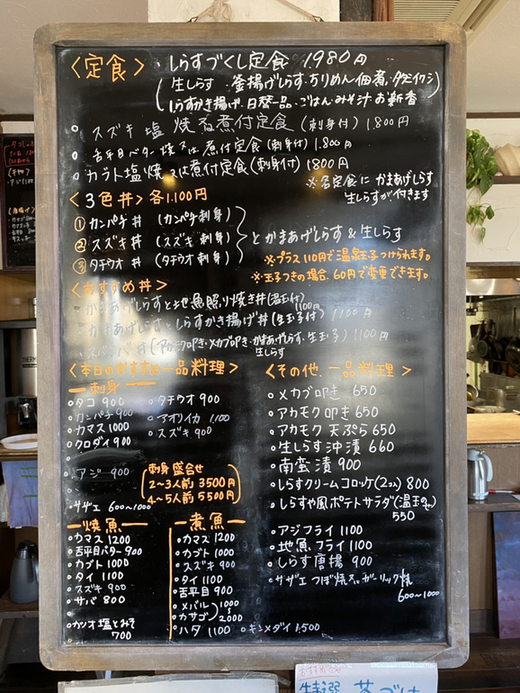 〈定食〉
・しらすづくし定食 1.980円
(生しらす・釜揚げしらす・ちりめん・佃煮・タタミイワシ
しらすかき揚げ・日替一品・ごはん・みそ汁 お新香)
。スズキ塩焼 又は 煮付定食 (刺身付) 1.800円
。舌平目バター焼 又は 煮付定食 (刺身付) 1.800円
。カブト塩焼 又は 煮付定食 (刺身付) 1800円
※各定食に かまあげしらす
生しらすが付きます
〈3色丼〉各1.100円
①カンパチ丼 (カンパチ刺身)
②スズキ丼 (スズキ刺身)
③タチウオ丼 (タチウオ刺身)
とかまあげしらす&生しらす
※プラス110円で温泉玉子つけられます。
※玉子つきの場合、60円で変更できます。
〈おすすめ丼〉
かまあげしらすと地魚照り焼き丼(温玉付) 1100円
かまあげしらすとしらすかき揚げ丼(生玉子付) 1100円
(アカモク叩き・メカブ叩き・かまあげしらす・生玉子) 1100円
生しらす
〈本日のおすすめ一品料理〉
ー刺身ー
。タコ 900
。カンパチ 900
。カマス 1000
。クロダイ 900
。アジー 900
。サザエ 600〜1000
。タチウオ 900
。アオリイカ 1100
。スズキ 900
刺身盛合せ
2〜3人前 3500円
4〜5人前 5500円
ー焼魚ー
。カマス 1200
。舌平目バター 900
。カブト 1000
。タイ 1100
。スズキ 900
。サバ 800
。カツオ塩とみそ
700
ー煮魚ー
。カマス 1200
。カブト 1000
。スズキ 900
。タイ 1100
。舌平目 900
。メバル
。カサゴ
1000〜2000
。ハタ 1100
。キンメダイ 1.500
〈その他、一品料理〉
。メカブ叩き 650
。アカモク叩き 650
。アカモク天ぷら 650
。生しらす沖漬 660
。南蛮漬 900
。しらすクリームコロッケ(2コ) 800
。しらすや風ポテトサラダ(温玉のせ)
550
。アジフライ 1100
。地魚フライ 1100
。しらす唐揚 900
。サザエ つぼ焼 又は ガーリック焼
600〜1000